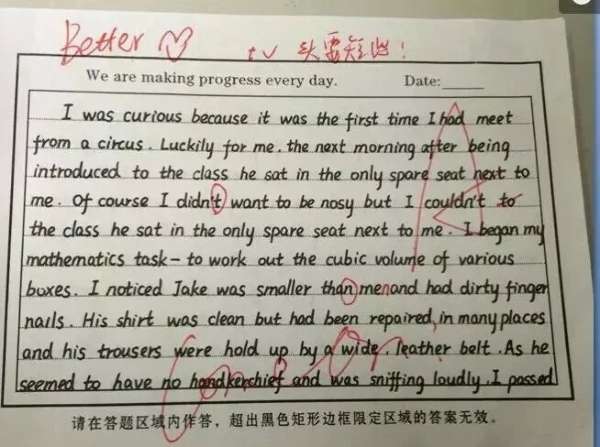 Better
t v 头要短些!
We are making progress every day. Date:
I was curious because it was the first time I had meet
from a circus. Luckily for me. the next morning after being
introduced to the class he sat in the only spare seat next to
me. Of course I didn't want to be nosy but I couldn't to
the class he sat in the only spare seat next to me. I began my
mathematics task - to work out the cubic volume of various
boxes. I noticed Jake was smaller than men and had dirty finger
nails. His shirt was clean but had been repaired, in many places
and his trousers were hold up by a wide, leather belt. As he
seemed to have no handkerchief and was sniffing loudly. I passed
请在答题区域内作答，超出黑色矩形边框限定区域的答案无效。